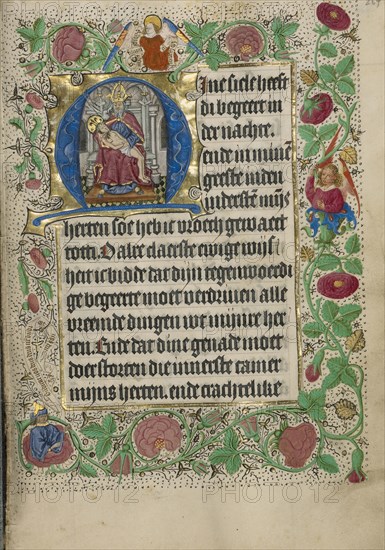 Mine siele heeft
du begeert in
der nachte.
ende in minen
geeste in den
indersten mijs
herten soe heb ic vroech gewaect
tot ti. O alre claerste ewige wijs
heit ic bidde dat dijn tegenwoerdi
ge begeerte moet verdriuen alle
vreemde dingen wt mijnre her
ten. Ende dat dine genade moet
doerstorten die innerste camer
mijns herten. ende crachtelike
PHOTO12